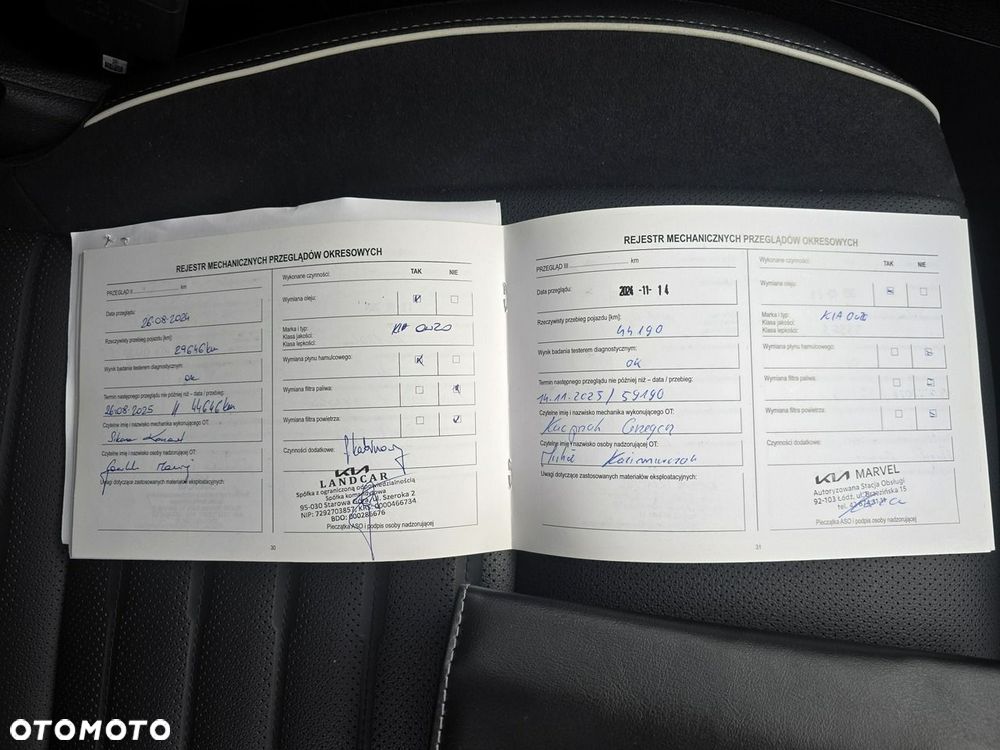 REJESTR MECHANICZNYCH PRZEGLĄDÓW OKRESOWYCH
PRZEGLĄD II km
Data przeglądu:
26-08-2024
Rzeczywisty przebieg pojazdu [km]:
29646 km
Wynik badania testerem diagnostycznym:
ok
Termin następnego przeglądu nie później niż – data / przebieg:
26-08-2025 // 44646 km
Czytelne imię i nazwisko mechanika wykonującego OT:
Czytelne imię i nazwisko osoby nadzorującej OT:
Uwagi dotyczące zastosowanych materiałów eksploatacyjnych:
Wykonane czynności: TAK NIE
Wymiana oleju:
Marka i typ: KIA 0W20
Klasa jakości:
Klasa lepkości:
Wymiana płynu hamulcowego:
Wymiana filtra paliwa:
Wymiana filtra powietrza:
Czynności dodatkowe:
KIA
LANDCAR
Spółka z ograniczoną odpowiedzialnością
Spółka komandytowa
95-030 Starowa Góra, ul. Szeroka 2
NIP: 7292703857, KRS: 0000466734
BDO: 000286676
Pieczątka ASO i podpis osoby nadzorującej
30
REJESTR MECHANICZNYCH PRZEGLĄDÓW OKRESOWYCH
PRZEGLĄD III km
Data przeglądu:
2024 -11- 14
Rzeczywisty przebieg pojazdu [km]:
44190
Wynik badania testerem diagnostycznym:
ok
Termin następnego przeglądu nie później niż – data / przebieg:
14.11.2025 / 59190
Czytelne imię i nazwisko mechanika wykonującego OT:
Czytelne imię i nazwisko osoby nadzorującej OT:
Uwagi dotyczące zastosowanych materiałów eksploatacyjnych:
Wykonane czynności: TAK NIE
Wymiana oleju:
Marka i typ: KIA
Klasa jakości:
Klasa lepkości:
Wymiana płynu hamulcowego:
Wymiana filtra paliwa:
Wymiana filtra powietrza:
Czynności dodatkowe:
KIA MARVEL
Autoryzowana Stacja Obsługi
92-103 Łódź, ul. Brzezińska 15
tel.
Pieczątka ASO i podpis osoby nadzorującej
31
OTOMOTO